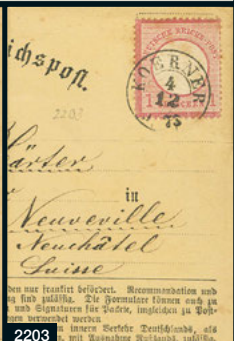 ichspost.
DEUTSCHE REICHS-POST
KOERNER
4
12
75
2203
Gärter
in
Neuveville
Neuchâtel
Suisse
den nur frankirt befördert. Recommandation und
ng sind zulässig. Die Formulare können auch zu
und Signaturen für Packete, ingleichen zu Post-
gen verwendet werden
innern Verkehr Deutschlands, als
mit Ausnahme Rußlands, zulässig.
2203